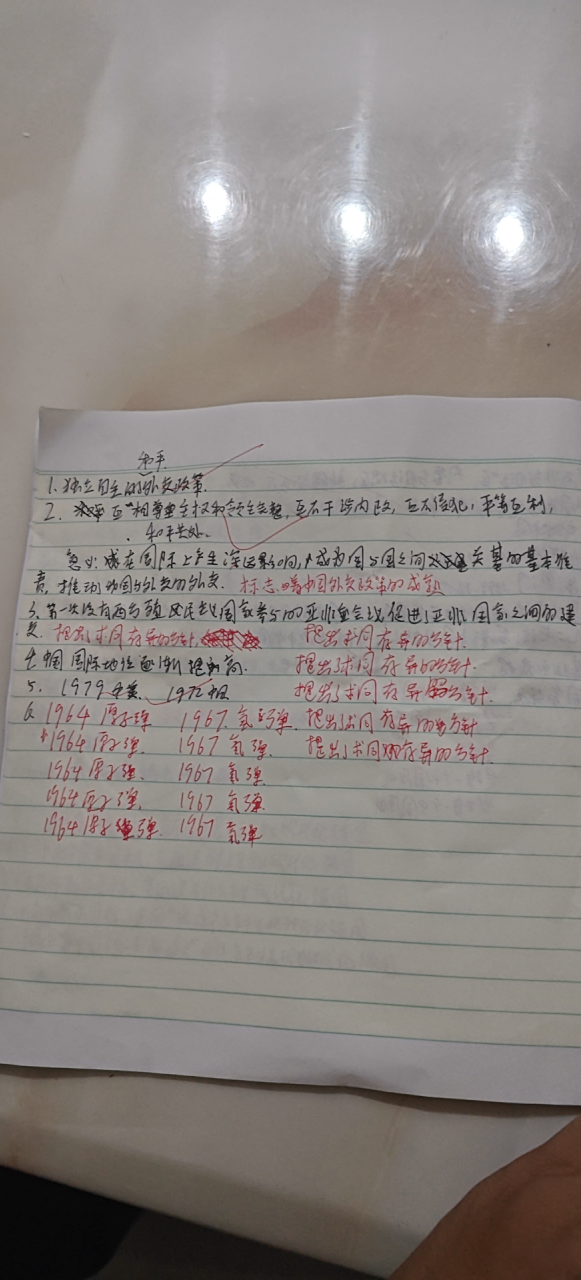 和平
1.独立自主的外交政策.
2. 互相尊重主权和领土完整,互不干涉内政,互不侵犯,平等互利,
.和平共处.
意义:在国际上产生深远影响,成为国与国之间关系的基本准
责,推动中国与外交的外交. 标志着中国外交政策的成熟
3.第一次没有西方殖民主义国家参与的亚非会议促进亚非国家之间的建
交. 提出求同存异的方针 提出求同存异的方针.
4.中国国际地位逐渐提高. 提出求同存异的方针.
5. 1979中美 1972中日 提出求同存异的方针.
6. 1964原子弹 1967氢弹. 提出求同存异的方针
1964原子弹 1967氢弹 提出求同存异的方针.
1964原子弹 1967氢弹
1964原子弹. 1967氢弹
1964原子弹 1967氢弹